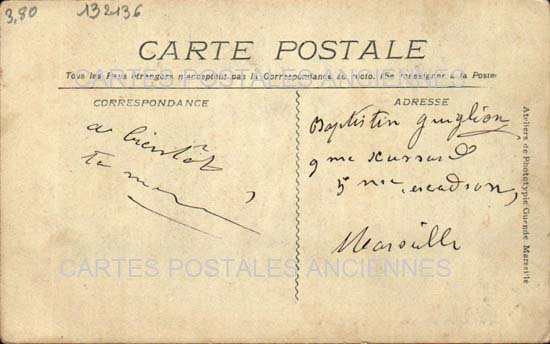 3,80 132136
CARTE POSTALE
CARTES POSTALES ANCIENNES
Tous les Pays étrangers n'acceptent pas la Correspondance au recto. (Se renseigner à la Poste)
CORRESPONDANCE
a bientôt
ta
ADRESSE
Baptistin Guiglion,
9me Hussard
5me escadron,
Marseille
Ateliers de Phototypie Guende Marseille
CARTES POSTALES ANCIENNES